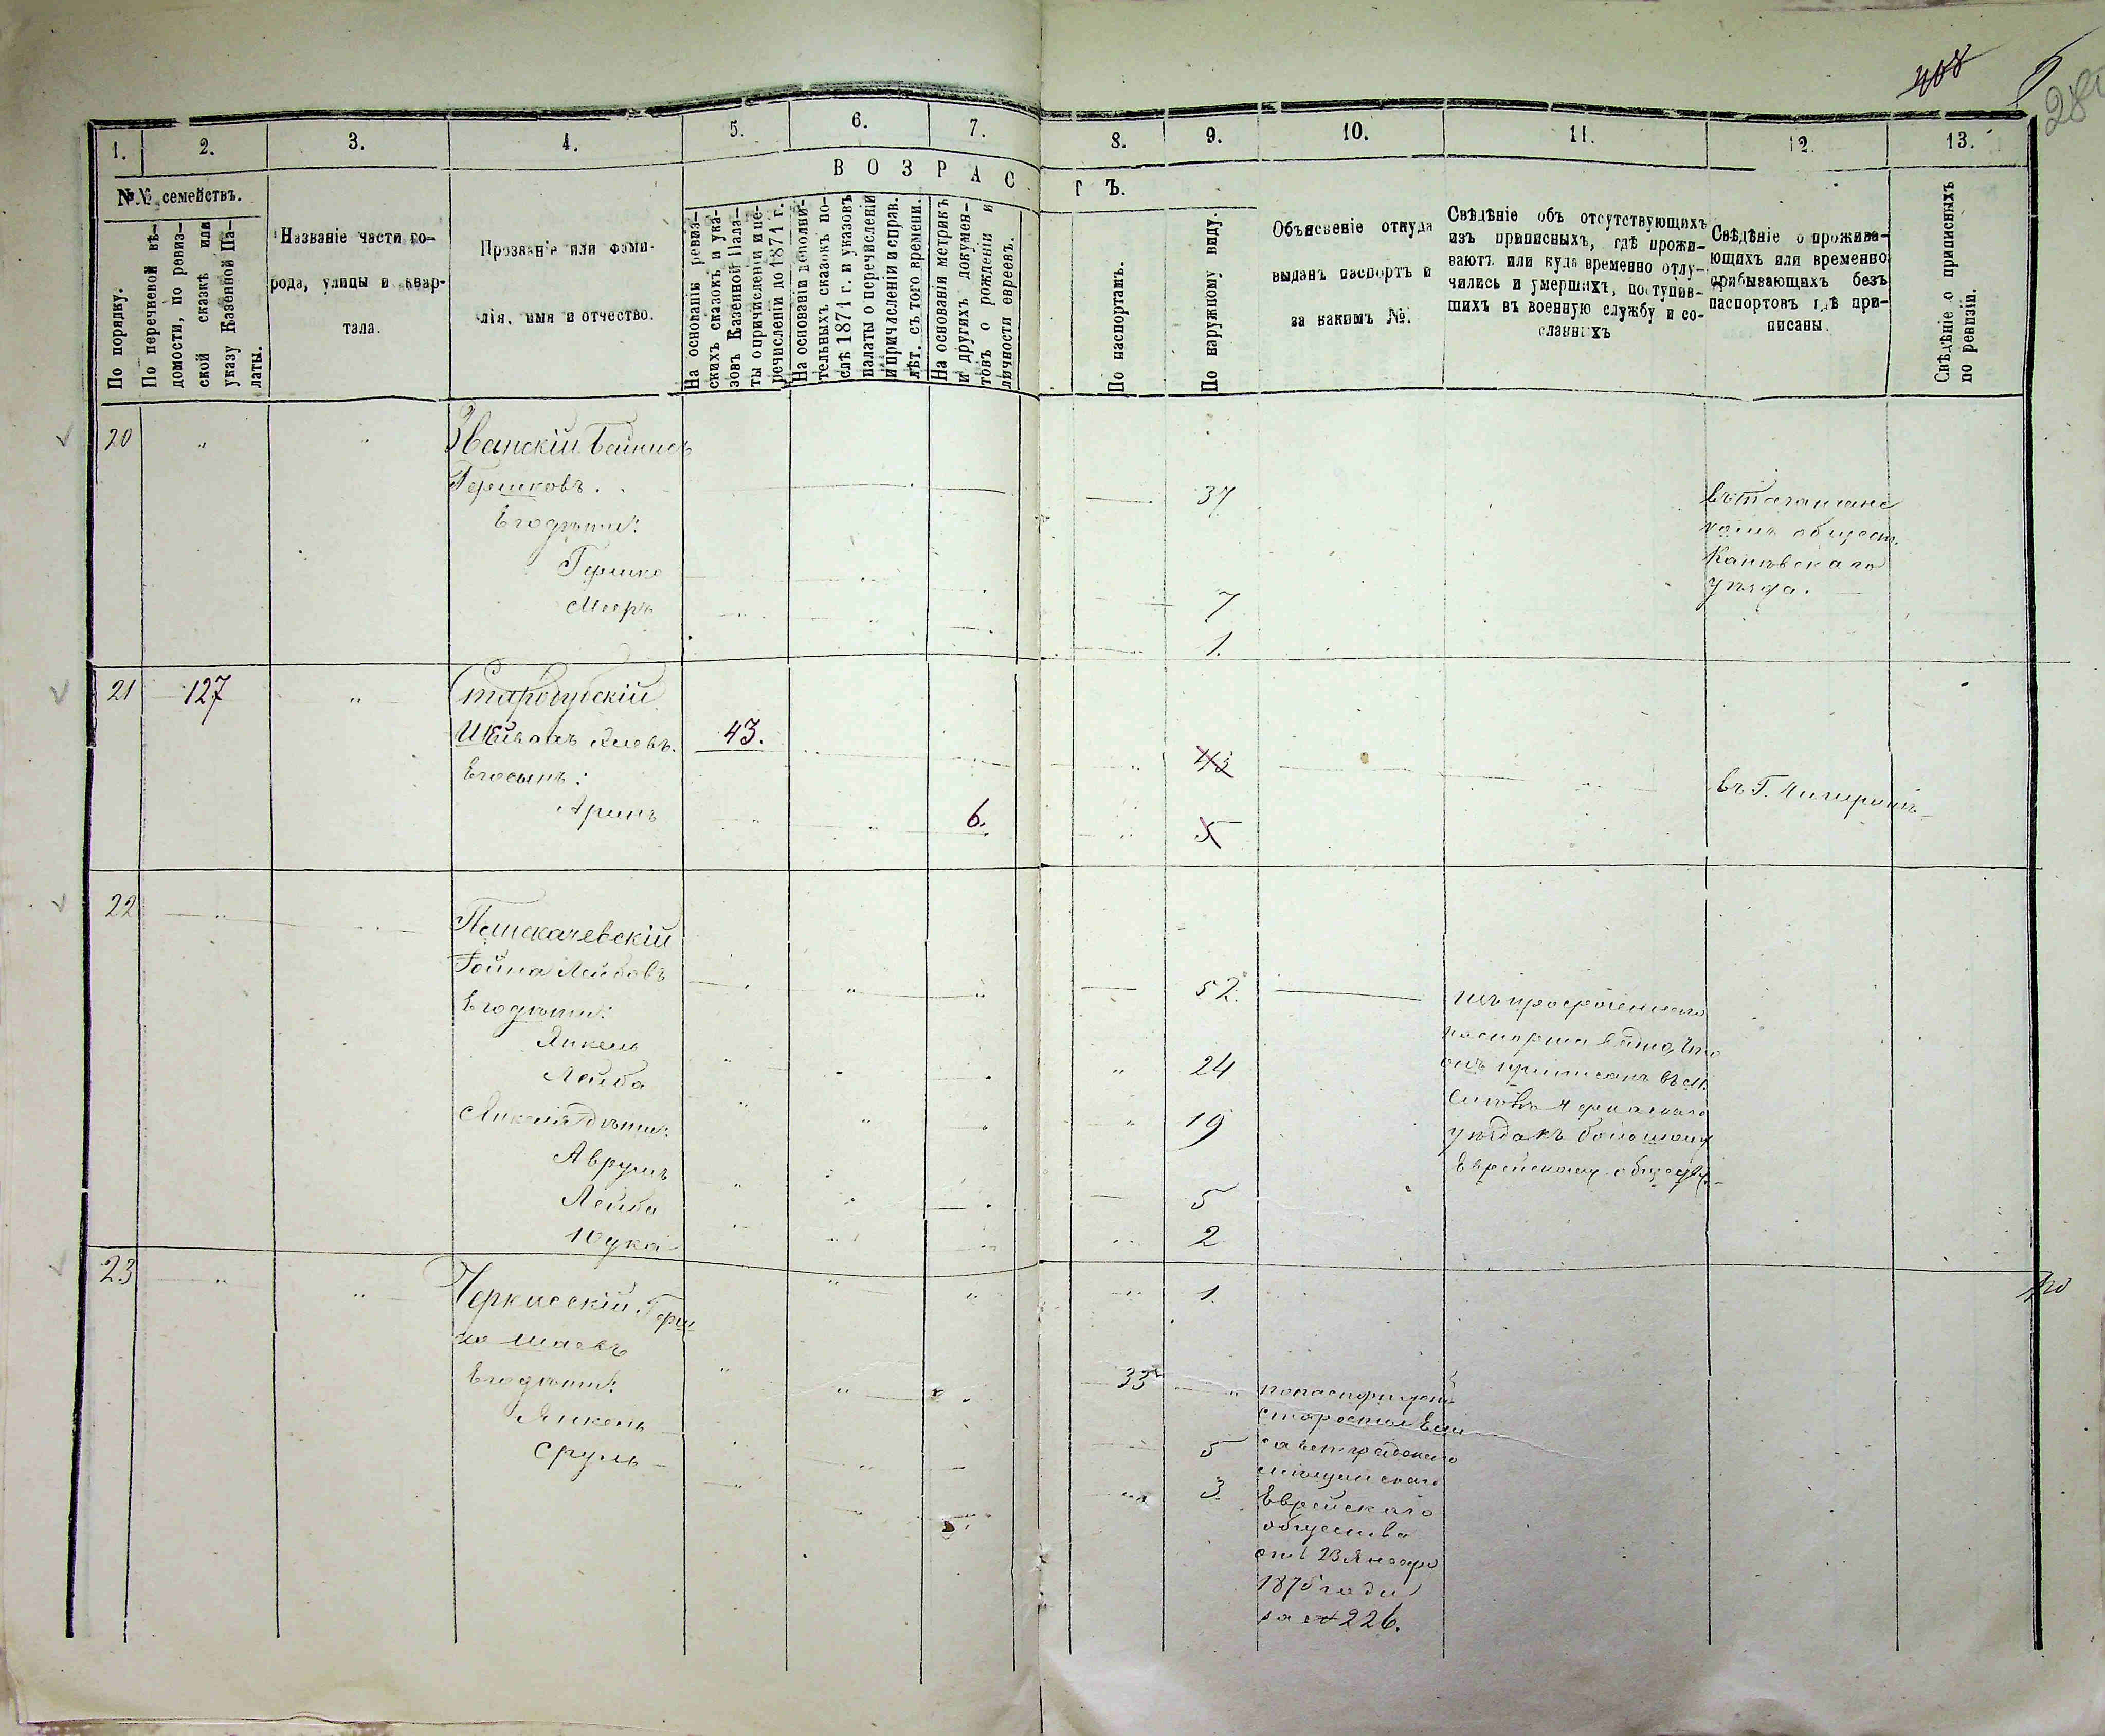 408
280
1.
2.
3.
4.
5.
6.
7.
8.
9.
10.
11.
12.
13.
ВОЗРАСТЪ.
№№ семействъ.
По порядку.
По перечневой вѣ-
домости, по ревиз-
ской сказкѣ или
указу Казенной Па-
латы.
Названіе части го-
рода, улицы и квар-
тала.
Прозваніе или фами-
лія, имя и отчество.
На основаніи ревиз-
скихъ сказокъ и ука-
зовъ Казенной Пала-
ты о причисленіи и пе-
речисленіи до 1871 г.
На основаніи дополни-
тельныхъ сказокъ по-
слѣ 1871 г. и указовъ
палаты о перечисленіи
и причисленіи и справ.
лѣт. съ того времени.
На основаніи метрикъ
и другихъ докумен-
товъ о рожденіи и
личности евреевъ.
По паспортамъ.
По наружному виду.
Объясненіе откуда
выданъ паспортъ и
за какимъ №.
Свѣдѣніе объ отсутствующихъ
изъ приписныхъ, гдѣ прожи-
ваютъ или куда временно отлу-
чились и умершихъ, поступив-
шихъ въ военную службу и со-
сланныхъ
Свѣдѣніе о прожива-
ющихъ или временно
прибывающихъ безъ
паспортовъ гдѣ при-
писаны.
Свѣдѣніе о приписныхъ
по ревизіи.
20
Званскій
Гершковъ.
Его дѣти:
Гершко
Мееръ
37
7
1.
Каневскаго
уѣзда.
21
127
Его сынъ:
Аринъ
43.
6.
43
5
въ Г. Чигиринѣ
22
Лейбовъ
Его дѣти:
Янкель
Лейба
Янкеля дѣти:
Аврумъ
Лейба
Юдка
52.
24
19
5
2
1.
изъ просроченнаго
паспорта видно, что
онъ приписанъ въ м.
Смѣлѣ Черкасскаго
уѣзда къ
Еврейскому обществу.
23
Черкасскій Герш
ко Шаевъ
Его дѣти:
Янкель
Сруль
33
5
3.
старостою Ели
саветградскаго
мѣщанскаго
Еврейскаго
общества
отъ 23 Января
1875 года
за № 226.